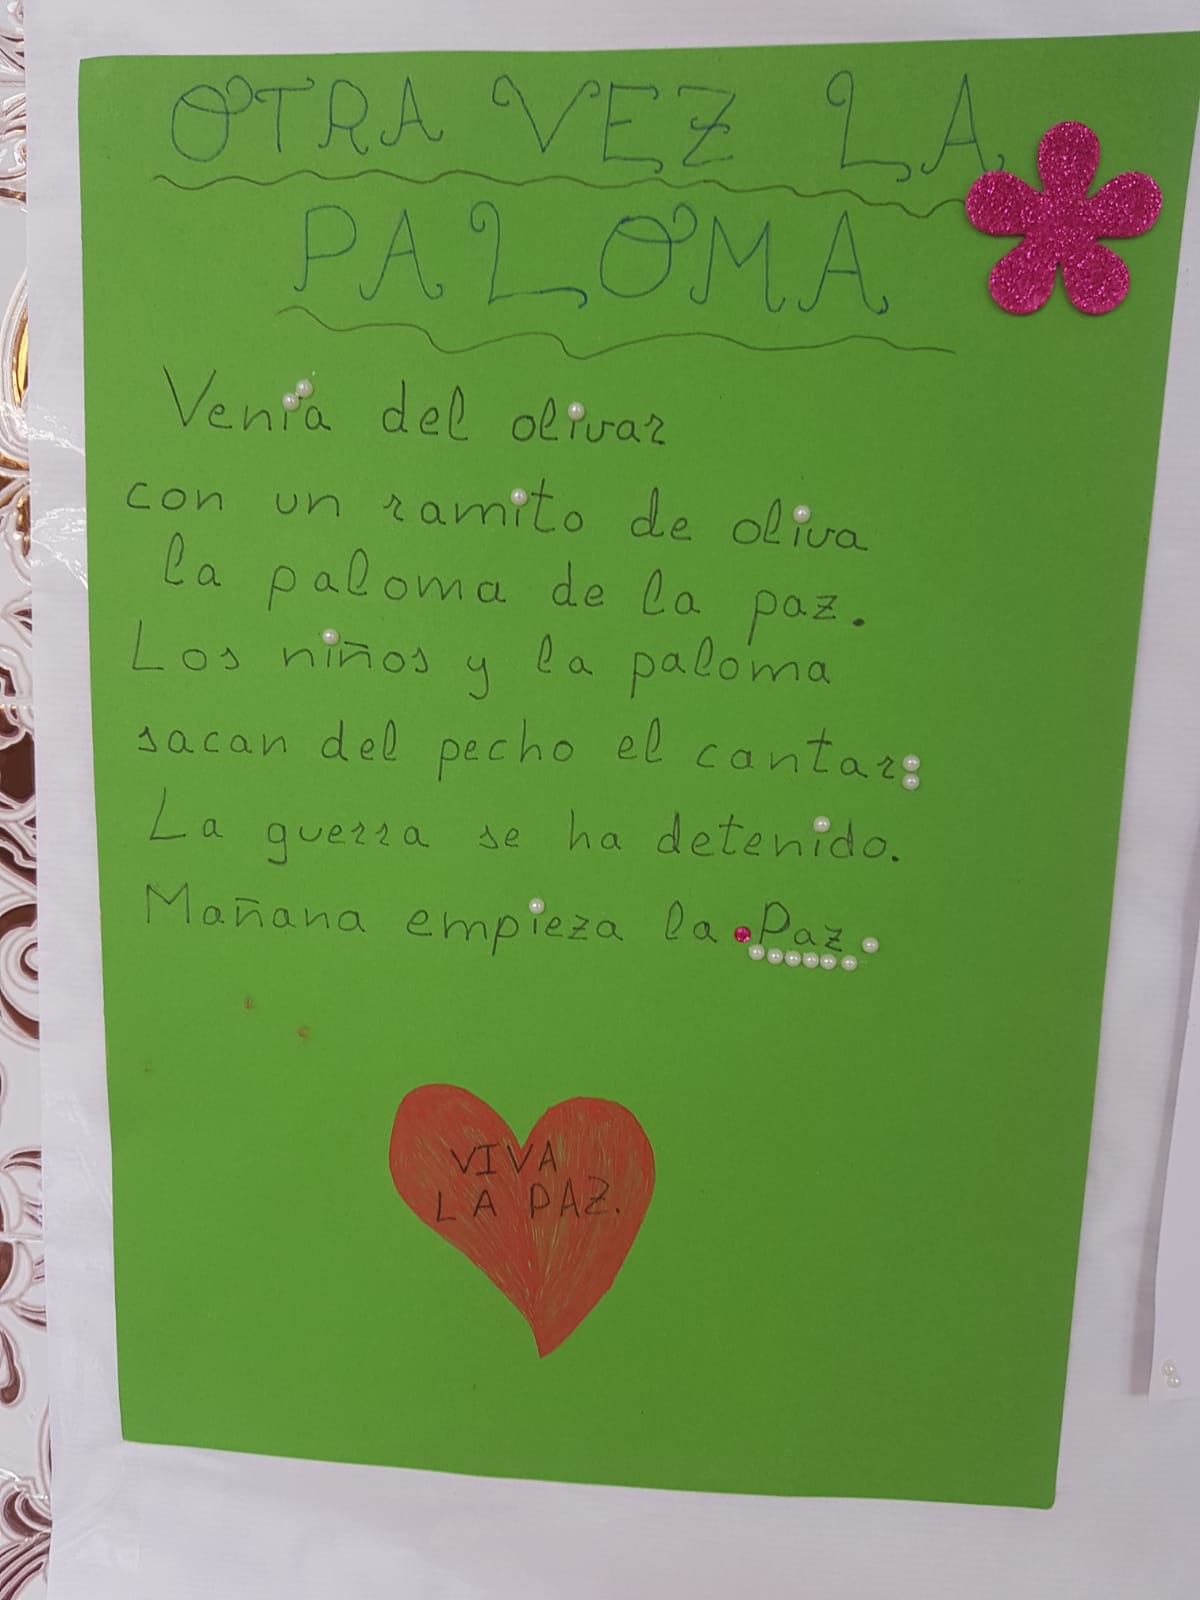 OTRA VEZ LA
PALOMA
Venía del olivar
con un ramito de oliva
la paloma de la paz.
Los niños y la paloma
sacan del pecho el cantar:
La guerra se ha detenido.
Mañana empieza la Paz.
VIVA
LA PAZ.